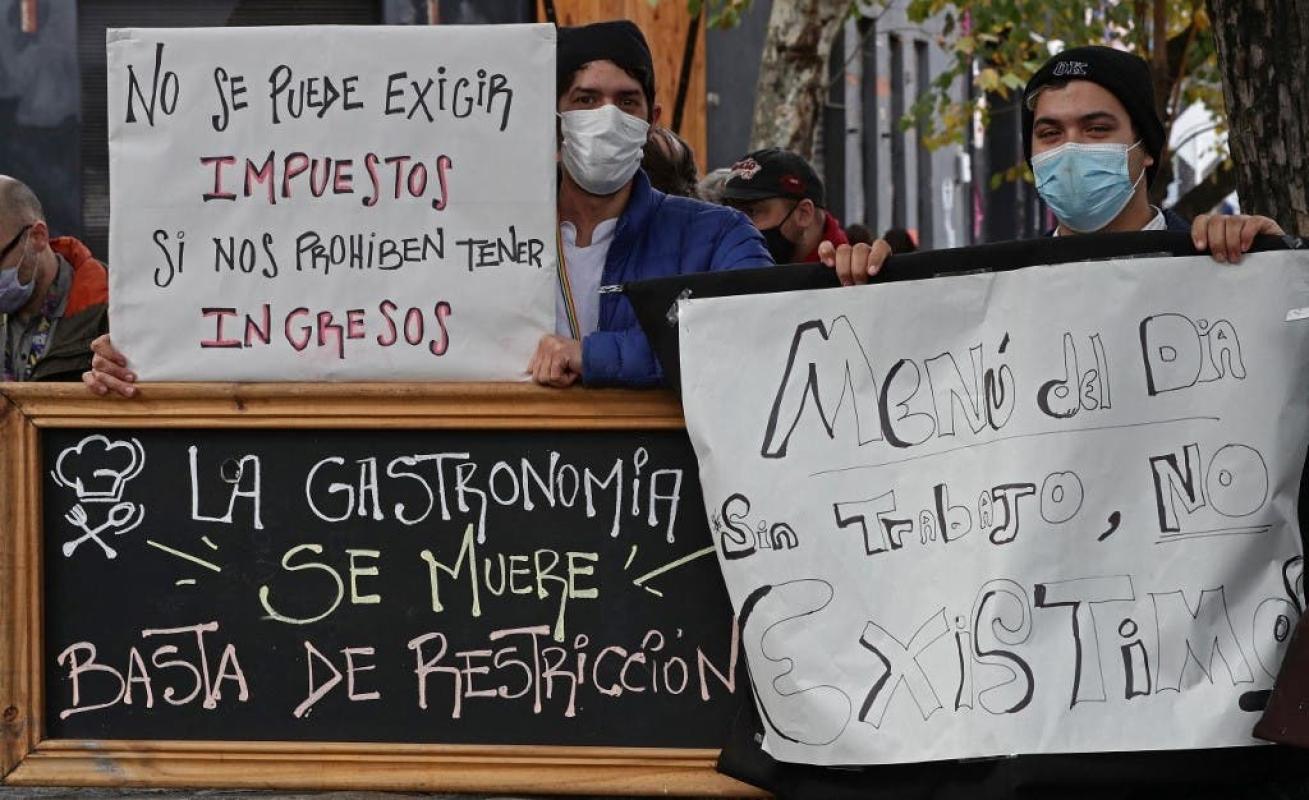 NO SE PUEDE EXIGIR
IMPUESTOS
SI NOS PROHIBEN TENER
INGRESOS
LA GASTRONOMíA
SE MUERE
BASTA DE RESTRICCIÓN
OK
MENÚ del DíA
*Sin TrabaJO, NO
EXiSTiMO